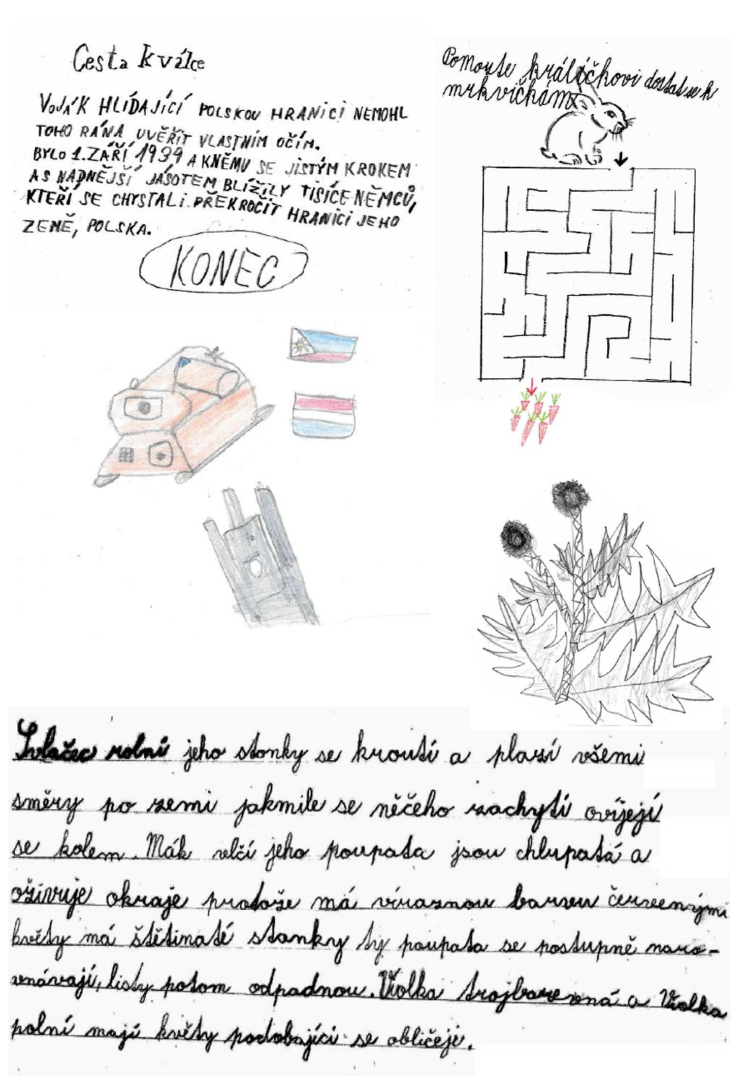 Cesta k válce
VOJÁK HLÍDAJÍCÍ POLSKOU HRANICI NEMOHL
TOHO RÁNA UVĚŘIT VLASTNÍM OČÍM.
BYLO 1. ZÁŘÍ 1939 A KNĚMU SE JISTÝM KROKEM
A S NADNĚJŠÍ JÁSOTEM BLÍŽILY TISÍCE NĚMCŮ,
KTEŘÍ SE CHYSTALI PŘEKROČIT HRANICI JEHO
ZEMĚ, POLSKA.
KONEC
Pomozte králíčkovi dostat se k
mrkvičkám
Svlačec rolní jeho stonky se kroutí a plazí všemi
směry po zemi jakmile se něčeho zachytí ovíjejí
se kolem. Mák vlčí jeho poupata jsou chlupatá a
oživuje okraje protože má víraznou barvu červenými
květy má štětinaté stonky ty poupata se postupně naro-
vnávají, listy potom odpadnou. Violka trojbarevná a Violka
polní mají květy podobající se obličeji.